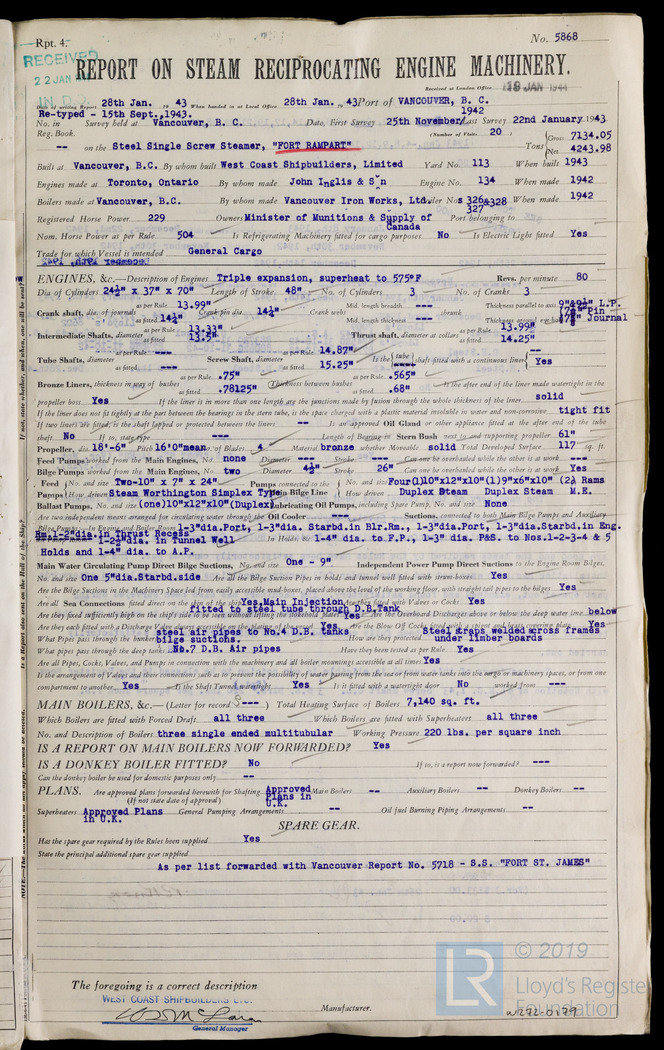 Rpt. 4.
No. 5868
RECEIVED
22 JAN
IN D.O.
REPORT ON STEAM RECIPROCATING ENGINE MACHINERY.
Received at London Office 19 JAN 1944
Date of writing Report 28th Jan. 1943 When handed in at Local Office 28th Jan. 1943 Port of VANCOUVER, B. C.
Re-typed - 15th Sept., 1943. 1942
No. in Survey held at Vancouver, B. C. Date, First Survey 25th November/ Last Survey 22nd January 1943
Reg. Book. (Number of Visits 20 )
-- on the Steel Single Screw Steamer, "FORT RAMPART" Tons Gross 7134.05 Net 4243.98
Built at Vancouver, B.C. By whom built West Coast Shipbuilders, Limited Yard No. 113 When built 1943
Engines made at Toronto, Ontario By whom made John Inglis & S'n Engine No. 134 When made 1942
Boilers made at Vancouver By whom made Vancouver Iron Works, Ltd. Boiler Nos 326 & 328 327 When made 1942
Registered Horse Power 229 Owners Minister of Munitions & Supply of Canada Port belonging to
Nom. Horse Power as per Rule 504 Is Refrigerating Machinery fitted for cargo purposes No Is Electric Light fitted Yes
Trade for which Vessel is intended General Cargo
ENGINES, &c.—Description of Engines Triple expansion, superheat to 575°F Revs. per minute 80
Dia of Cylinders 24½" x 37" x 70" Length of Stroke 48" No. of Cylinders 3 No. of Cranks 3
Crank shaft, dia. of journals as per Rule 13.99" as fitted 14¼" Crank pin dia. 14¼" Crank webs Mid. length breadth --- Mid. length thickness --- shrunk Thickness parallel to axis 9" L.P. Pin Thickness around eye-hole Journal
Intermediate Shafts, diameter as per Rule 13.33" as fitted 13.5" Thrust shaft, diameter at collars as per Rule 13.99" as fitted 14.25"
Tube Shafts, diameter as per Rule --- as fitted --- Screw Shaft, diameter as per Rule 14.87" as fitted 15.25" Is the tube shaft fitted with a continuous liner Yes
Bronze Liners, thickness in way of bushes as per Rule .75" as fitted .78125" Thickness between bushes as per Rule .565" as fitted .68" Is the after end of the liner made watertight in the
propeller boss Yes If the liner is in more than one length are the junctions made by fusion through the whole thickness of the liner solid
If the liner does not fit tightly at the part between the bearings in the stern tube, is the space charged with a plastic material insoluble in water and non-corrosive tight fit
If two liners are fitted, is the shaft lapped or protected between the liners -- Is an approved Oil Gland or other appliance fitted at the after end of the tube
shaft No If so, state type --- Length of Bearing in Stern Bush next to and supporting propeller 61"
Propeller, dia. 18'-6" Pitch 16'0"mean No. of Blades 4 Material bronze whether Moveable solid Total Developed Surface 117 sq. ft.
Feed Pumps worked from the Main Engines, No. none Diameter --- Stroke --- Can one be overhauled while the other is at work ---
Bilge Pumps worked from the Main Engines, No. two Diameter 4½" Stroke 26" Can one be overhauled while the other is at work Yes
Feed Pumps No. and size Two-10" x 7" x 24" Pumps connected to the Main Bilge Line No. and size Four(1)10"x12"x10"(1)9"x6"x10" (2) Rams
How driven Steam Worthington Simplex Type How driven Duplex Steam Duplex Steam M.E.
Ballast Pumps, No. and size (one)10"x12"x10"(Duplex) Lubricating Oil Pumps, including Spare Pump, No. and size None
Are two independent means arranged for circulating water through the Oil Cooler --- Suctions, connected to both Main Bilge Pumps and Auxiliary
Bilge Pumps—In Engine and Boiler Room 1-3"dia.Port, 1-3"dia. Starbd.in Blr.Rm., 1-3"dia.Port, 1-3"dia.Starbd.in Eng.
Rm.1-2"dia.in Thrust Recess
1-2½"dia. in Tunnel Well In Holds, &c. 1-4" dia. to F.P., 1-3" dia. P&S. to Nos.1-2-3-4 & 5
Holds and 1-4" dia. to A.P.
Main Water Circulating Pump Direct Bilge Suctions, No. and size One - 9" Independent Power Pump Direct Suctions to the Engine Room Bilges,
No. and size One 5"dia.Starbd.side Are all the Bilge Suction Pipes in holds and tunnel well fitted with strum-boxes Yes
Are the Bilge Suctions in the Machinery Space led from easily accessible mud-boxes, placed above the level of the working floor, with straight tail pipes to the bilges Yes
Are all Sea Connections fitted direct on the skin of the ship Yes, Main Injection fitted to steel tube through D.B.Tank together fitted with Valves or Cocks Yes
Are they fixed sufficiently high on the ship's side to be seen without lifting the stokehold plates Yes Are the Overboard Discharges above or below the deep water line below
Are they each fitted with a Discharge Valve always accessible on the plating of the vessel Yes Are the Blow Off Cocks fitted with a spigot and brass covering plate Yes
What Pipes pass through the bunkers steel air pipes to No.4 D.B. tanks bilge suctions. How are they protected Steel straps welded across frames under limber boards
What pipes pass through the deep tanks No.7 D.B. Air pipes Have they been tested as per Rule Yes
Are all Pipes, Cocks, Valves, and Pumps in connection with the machinery and all boiler mountings accessible at all times Yes
Is the arrangement of Valves and their connections such as to prevent the possibility of water passing from the sea or from water tanks into the cargo or machinery spaces, or from one
compartment to another Yes Is the Shaft Tunnel watertight Yes Is it fitted with a watertight door No worked from ---
MAIN BOILERS, &c.—(Letter for record --- ) Total Heating Surface of Boilers 7,140 sq. ft.
Which Boilers are fitted with Forced Draft all three Which Boilers are fitted with Superheaters all three
No. and Description of Boilers three single ended multitubular Working Pressure 220 lbs. per square inch
IS A REPORT ON MAIN BOILERS NOW FORWARDED? Yes
IS A DONKEY BOILER FITTED? No If so, is a report now forwarded? ---
Can the donkey boiler be used for domestic purposes only --
PLANS. Are approved plans forwarded herewith for Shafting Approved Plans in U.K. Main Boilers -- Auxiliary Boilers -- Donkey Boilers --
(If not state date of approval)
Superheaters Approved Plans in U.K. General Pumping Arrangements -- Oil fuel Burning Piping Arrangements --
SPARE GEAR.
Has the spare gear required by the Rules been supplied Yes
State the principal additional spare gear supplied
As per list forwarded with Vancouver Report No. 5718 - S.S. "FORT ST. JAMES"
The foregoing is a correct description
WEST COAST SHIPBUILDERS LTD.
Manufacturer.
General Manager
© 2019
LR
Lloyd's Register
Foundation
W272-0179